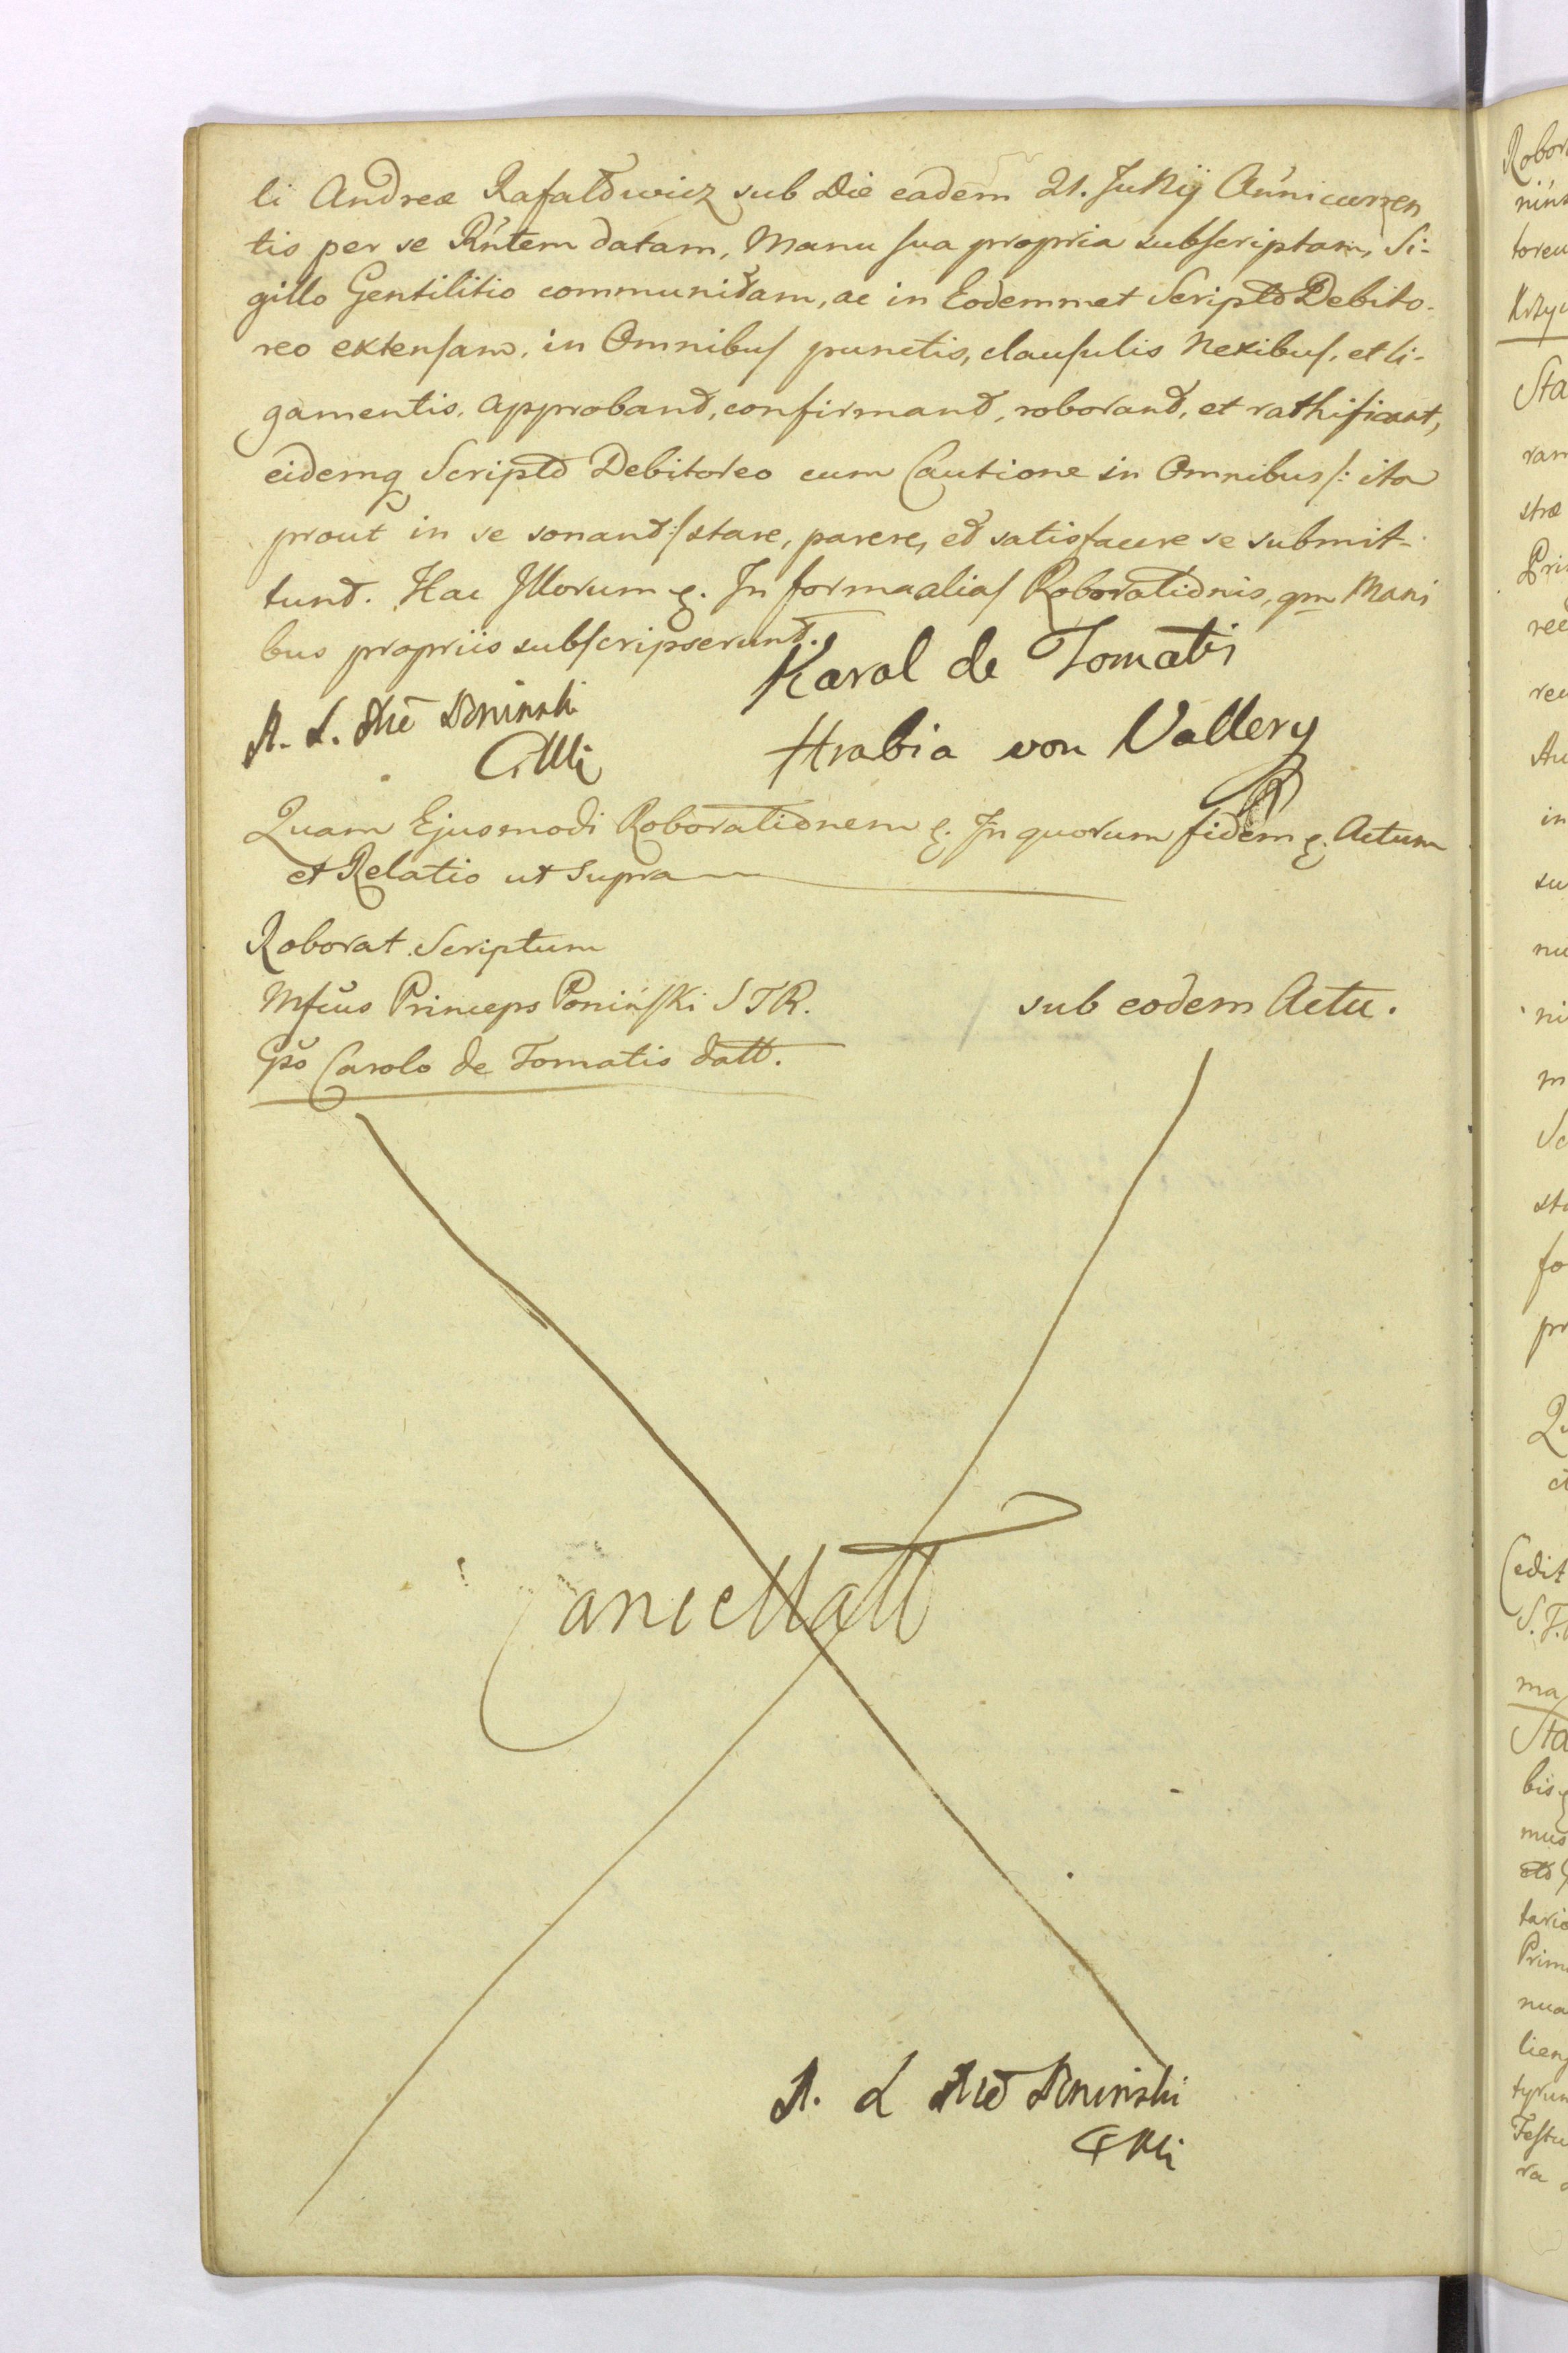 li Andreæ Rafałowicz sub Die eadem 21. Junij Anni curren
tis per se Rntem datam, Manu sua propria subscriptam, Si-
gillo Gentilitio communitam, ac in Eodemmet Scripto Debito-
reo extensam, in Omnibus punctis, clausulis Nexibus, et li-
gamentis, approband, confirmand, roborand, et rathificant,
eidemq Scripto Debitoreo cum Cautione in Omnibus /: ita
prout in se sonant :/ stare, parere, et satisfacere se submit-
tunt. Hac Illorum e. In forma alias Roborationis, qm Mani
bus propriis subscripserunt.
Karol de Tomatis
A. L. Poninski
Hrabia von Vallery
Quam Ejusmodi Roborationem e. In quorum fidem e. Actum
et Relatio ut supra
Roborat Scriptum
Mfcus Princeps Poniński STR.
sub eodem Actu.
Gso Carolo de Tomatis datt.
Cancellatt
A. L Poninski